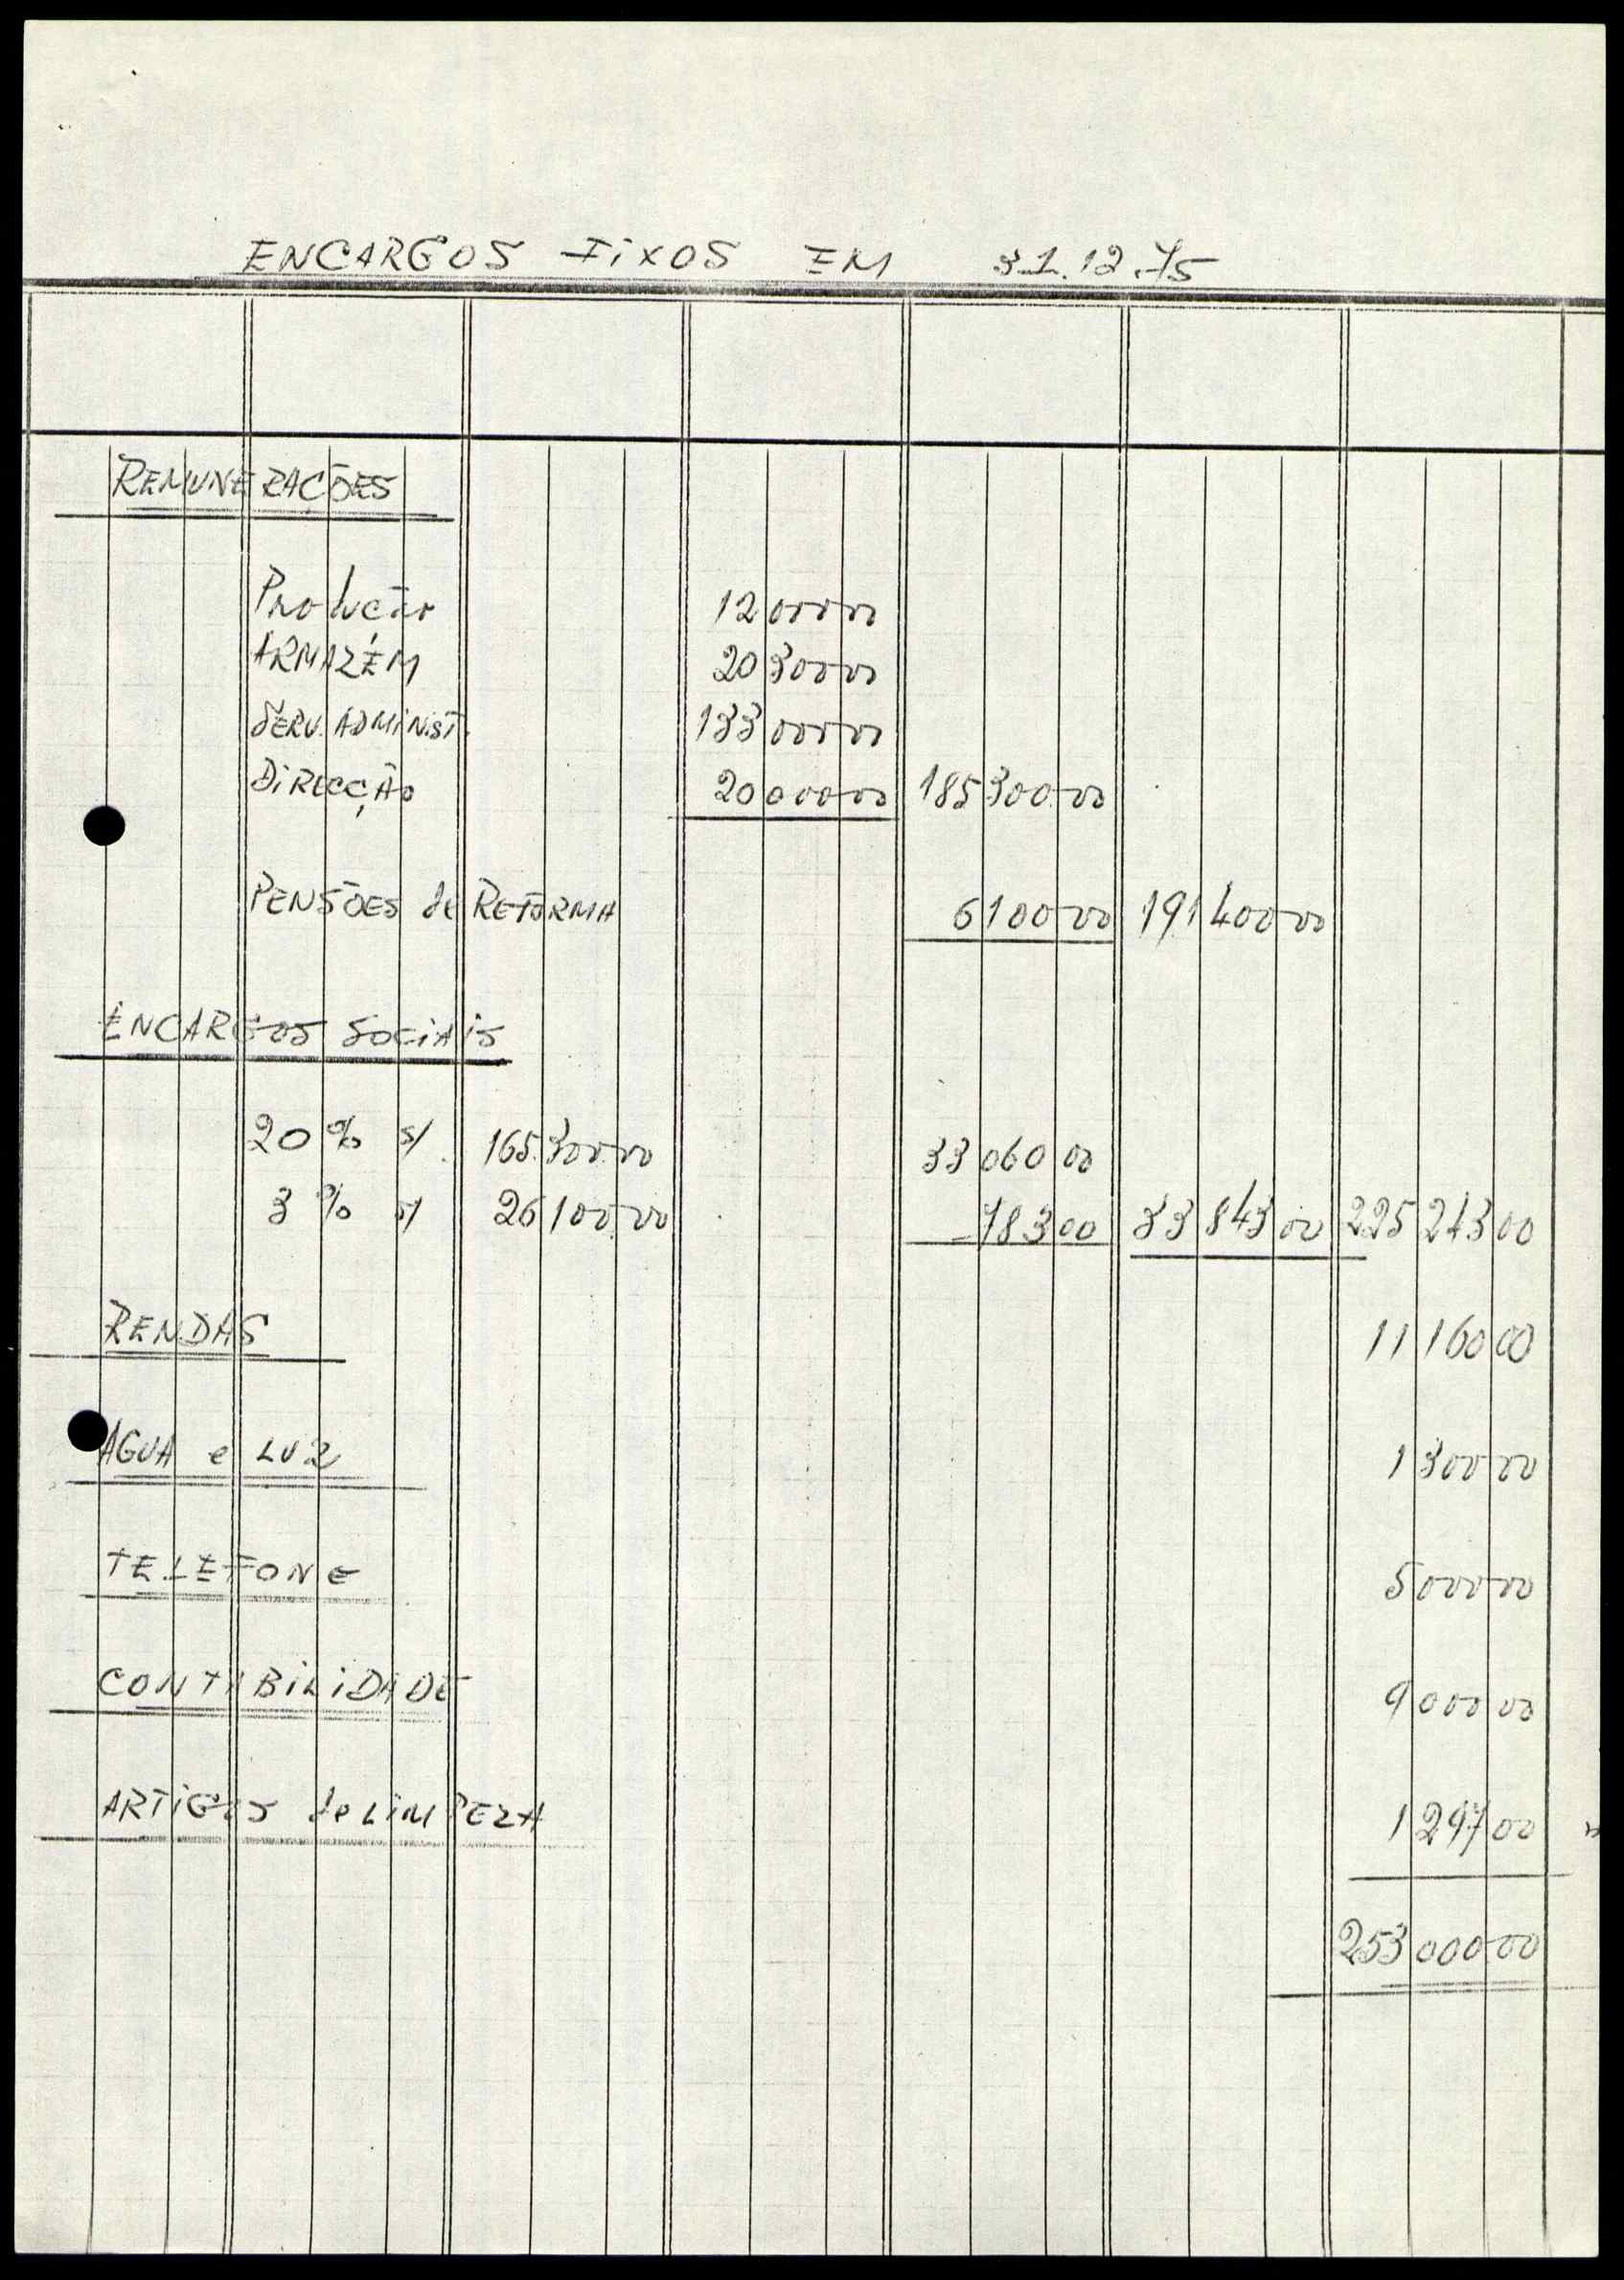 ENCARGOS FIXOS EM 31.12.75
REMUNERAÇÕES
Produção 12 000 00
ARMAZÉM 20 300 00
SERV. ADMINIST. 133 000 00
DIRECÇÃO 20 000 00 185 300 00
PENSÕES de REFORMA 6 100 00 191 400 00
ENCARGOS SOCIAIS
20 % s/ 165.300.00 33 060 00
3 % s/ 26 100.00 783 00 33 843 00 225 243 00
RENDAS 11 160 00
AGUA e LUZ 1 300 00
TELEFONE 5 000 00
CONTABILIDADE 9 000 00
ARTIGOS de LIMPEZA 1 297 00
253 000 00